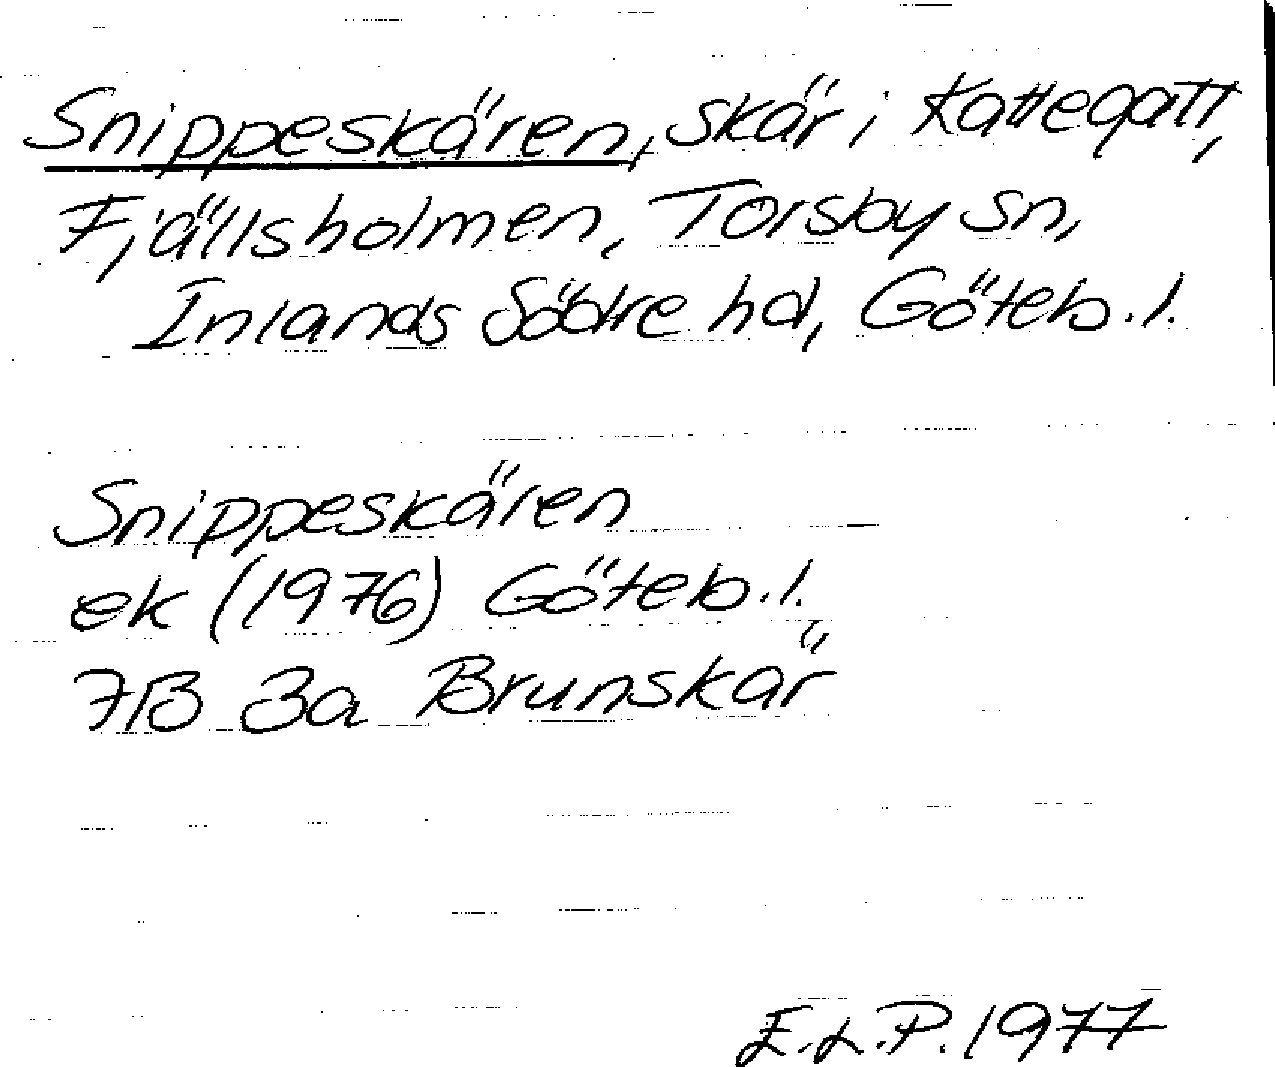 Snippeskären, skär i Kattegatt,
Fjällsholmen, Torsby sn,
Inlands Södre hd, Göteb.l.
Snippeskären
ek (1976) Göteb.l.
7B 3a Brunskär
E.L.P. 1977